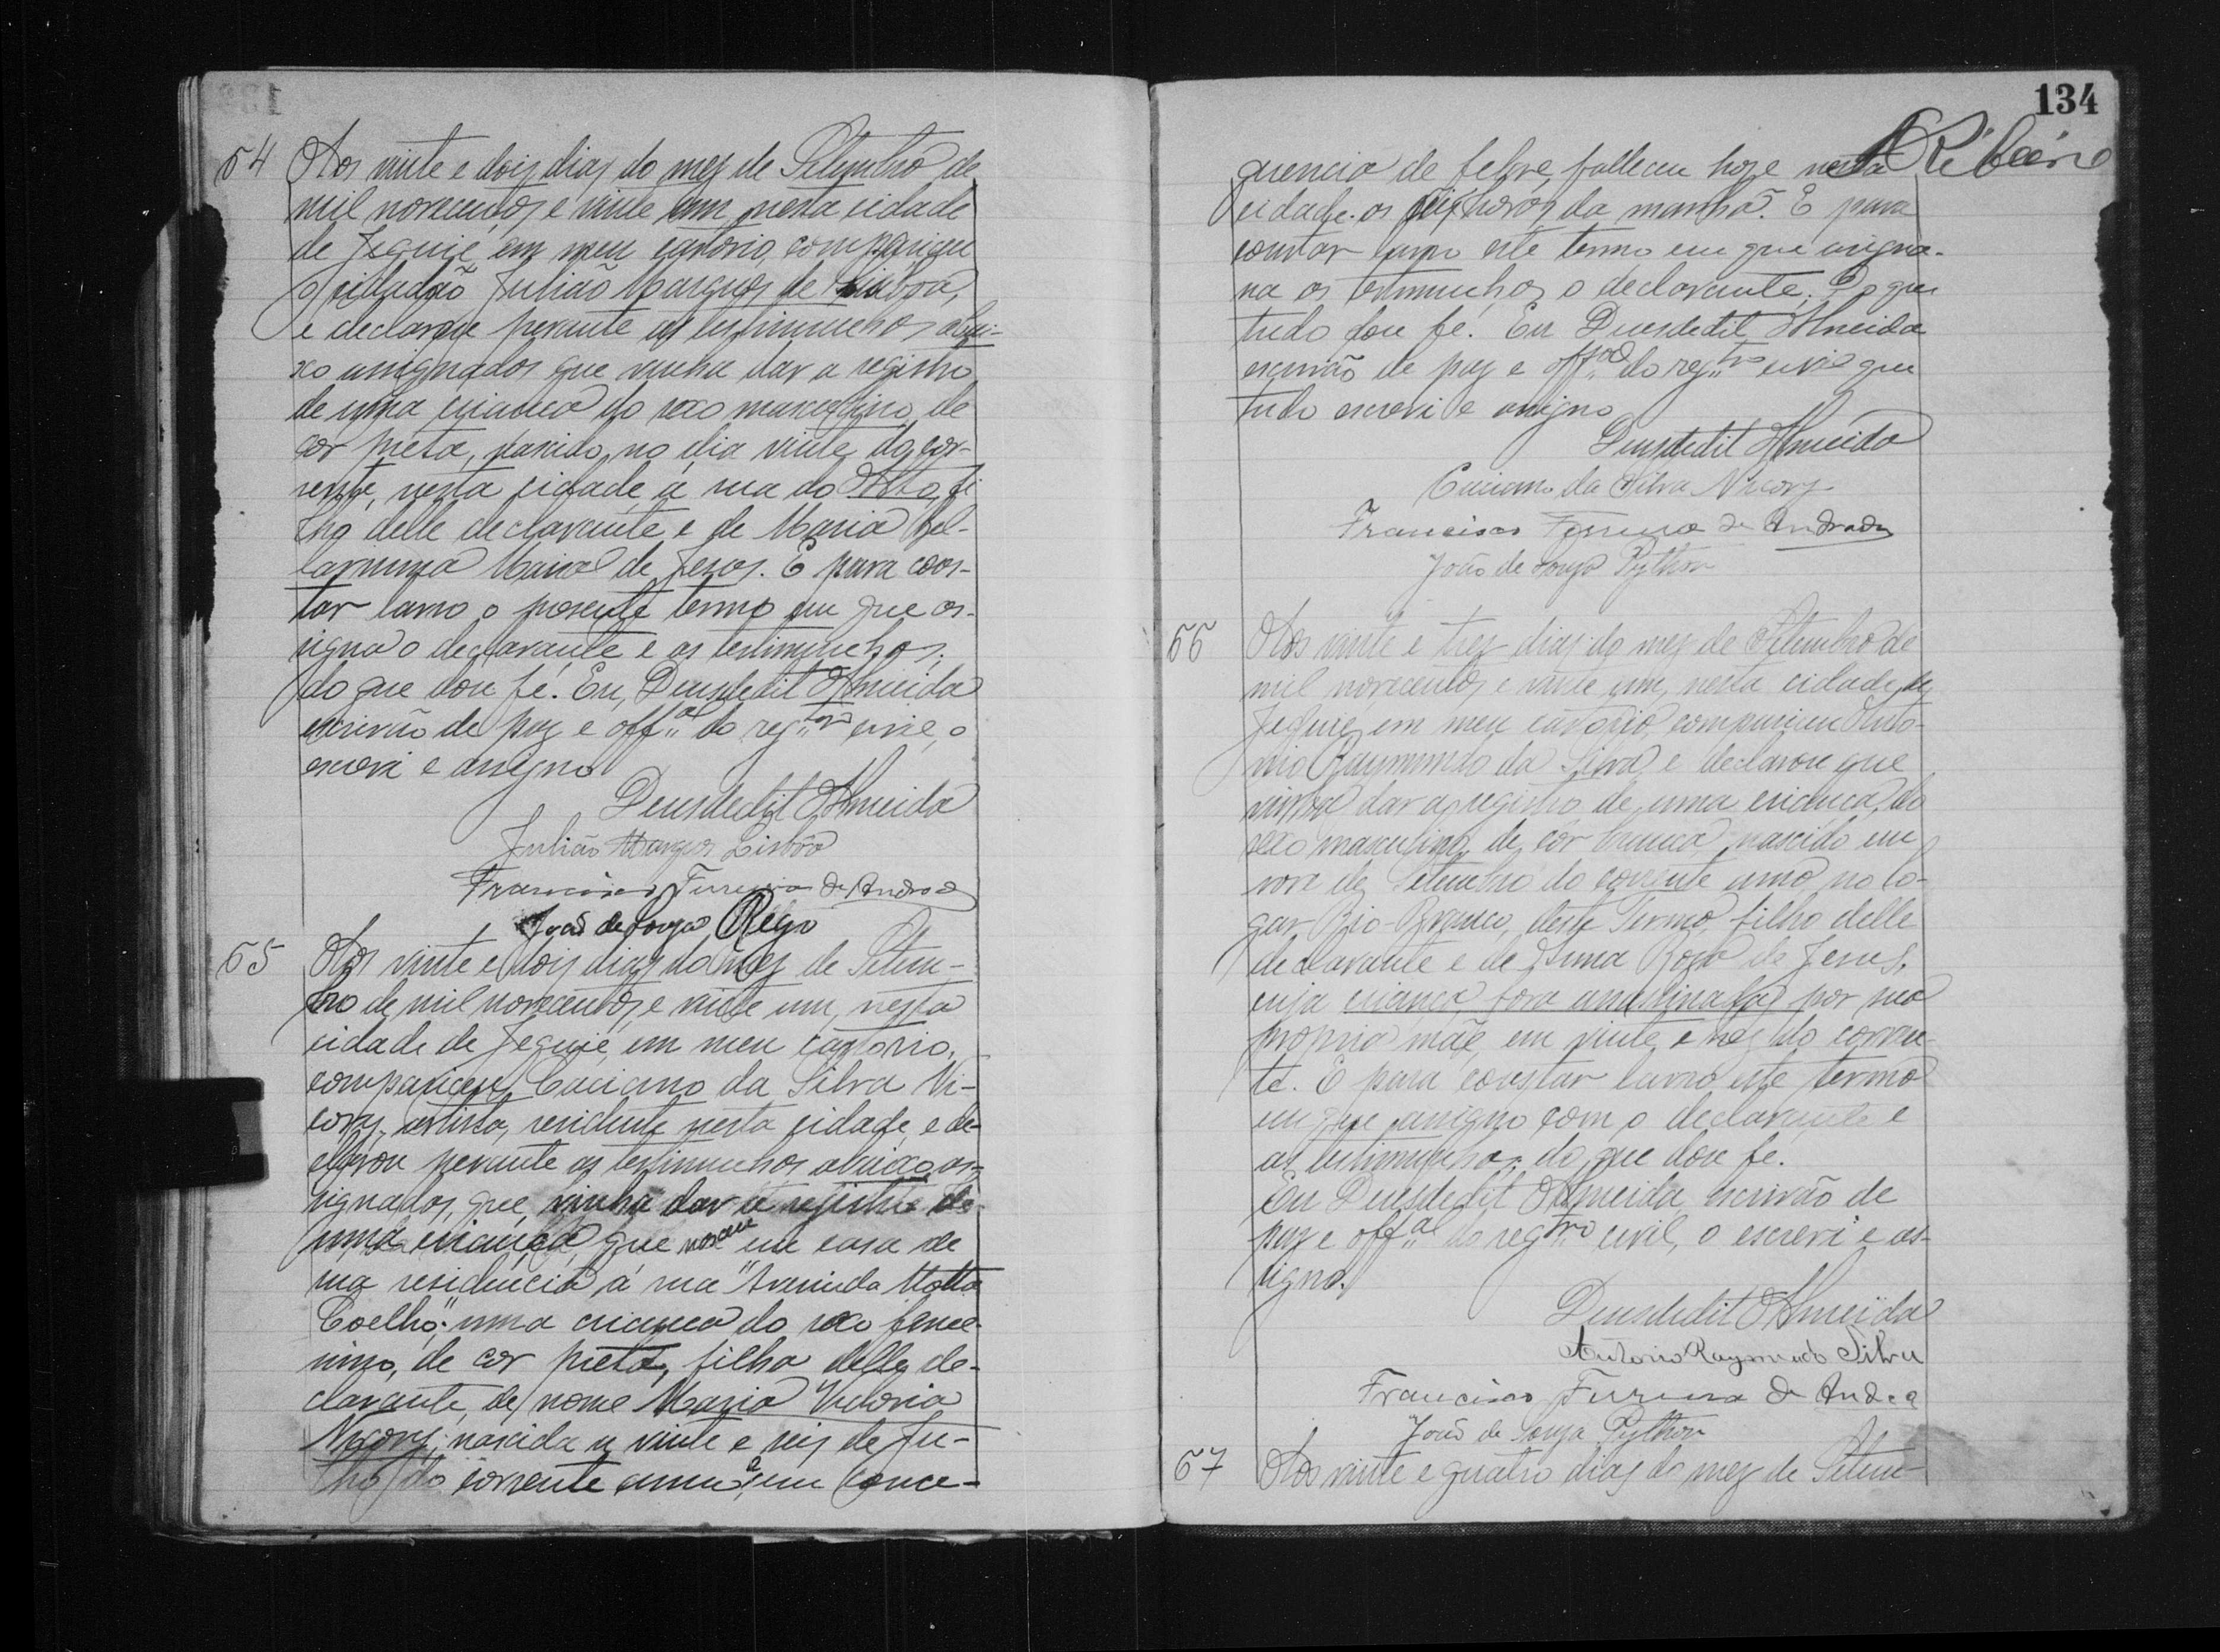 64 Aos vinte e dois dias do mez de Setembro de
mil novecentos e vinte um nesta cidade
de Jequié em meu cartorio, compareceu
o cidadão Julião Marques de Lisbôa,
e declarou perante as testimunhas abai-
xo assignados que vinha dar a registro
de uma criança do sexo masculino, de
cor preta, nascido no dia vinte do cor-
rente, nesta cidade á rua do Alto, fi
lho delle declarante e de Maria Bel-
larmina de Jesus. E para cons-
tar lavro o presente termo em que as-
signa o declarante e as testimunhas,
do que dou fé. Eu, Deusdedit Almeida
escrivão de paz e off.al do reg.tro civil, o
escrevi e assigno
Deusdedit Almeida
Julião Marques Lisbôa
Francisco Ferreira de Andrade
João de Souza Rego
65 Aos vinte e dois dias do mez de Setem-
bro de mil novecentos e vinte um, nesta
cidade de Jequié, em meu cartorio,
compareceu Caciano da Silva Ni-
cory, artista, residente nesta cidade, e de-
clarou perante as testimunhas abaixo as-
signados, que, vinha dar a registro de
uma criança, que nasceu em casa de
sua residencia, á rua "Avenida Motta
Coelho", uma criança do sexo femi-
nino, de cor preta, filha delle de-
clarante, de nome Maria Victoria
Nicory, nascida a vinte e seis de Ju-
lho do corrente anno, e em conse-
134
A Ribeiro
quencia de febre, falleceu hoje nesta
cidade as horas da manhã. E para
constar lavro este termo em que assigna-
na as testimunhas o declarante. Do que
tudo dou fé. Eu Deusdedit Almeida
escrivão de paz e off.al do reg.tro civil que
tudo escrevi e assigno
Deusdedit Almeida
Caciano da Silva Nicory
Francisco Ferreira de Andrade
João de Souza Python
66 Aos vinte e trez dias do mez de Setembro de
mil novecentos e vinte um, nesta cidade de
Jequié, em meu cartorio, compareceu Anto-
nio Raymundo da Silva, e declarou que
vinha dar a registro de uma criança, do
sexo masculino, de côr branca, nascido em
nove de Setembro do corrente anno no lo-
gar Rio-Branco, deste Termo, filho delle
declarante e de Anna Rosa de Jesus,
cuja criança fora assassinada por sua
propria mãe, em vinte e trez do corren-
te. E para constar lavro este termo
em que assigno com o declarante e
as testimunhas, do que dou fé.
Eu Deusdedit Almeida, escrivão de
paz e off.al do reg.tro civil, o escrevi e as-
signo.
Deusdedit Almeida
Antonio Raymundo Silva
Francisco Ferreira de
João de Souza Python
67 Aos vinte e quatro dias do mez de Setem-